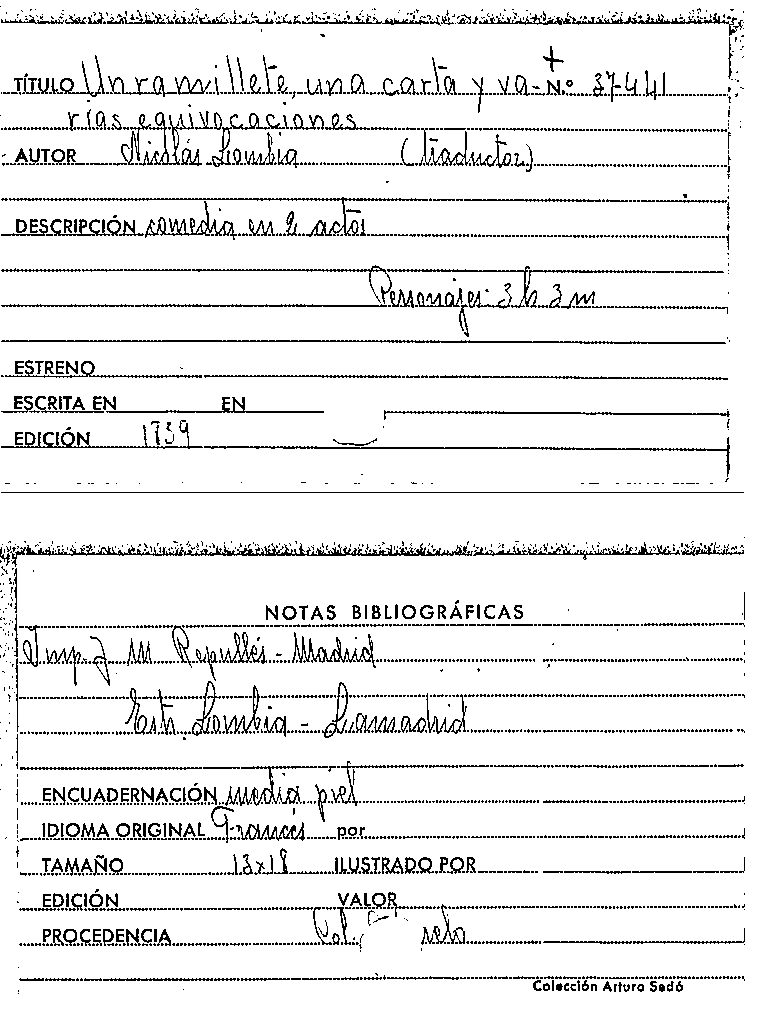 TÍTULO Un ramillete, una carta y va- N.º 37-441
rías equivocaciones
AUTOR Nicolás Lombia (traductor)
DESCRIPCIÓN comedia en 2 actos
Personajes: 3 h 3 m
ESTRENO
ESCRITA EN EN
EDICIÓN 1739
NOTAS BIBLIOGRÁFICAS
Imp. J M Repullés - Madrid
Estr. Lombia - Lamadrid
ENCUADERNACIÓN media piel
IDIOMA ORIGINAL Francés por
TAMAÑO 13x18 ILUSTRADO POR
EDICIÓN VALOR
PROCEDENCIA Col.
Colección Arturo Sedó